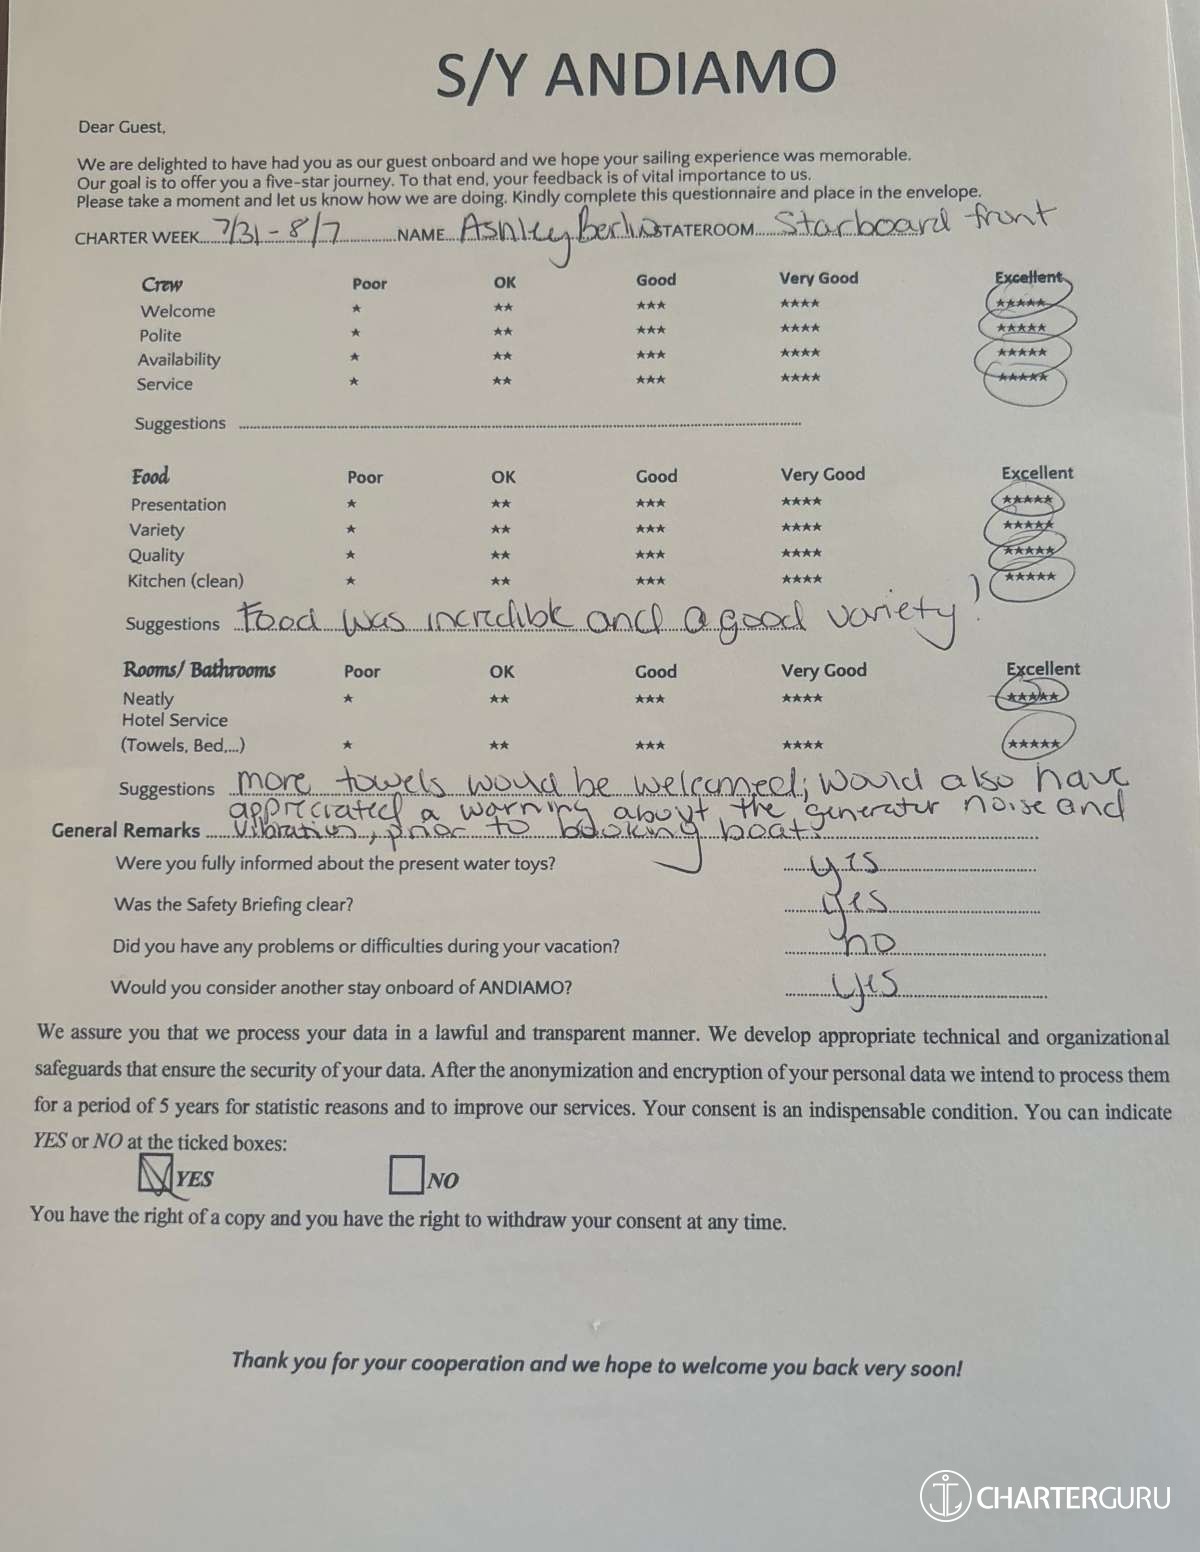 S/Y ANDIAMO
Dear Guest,
We are delighted to have had you as our guest onboard and we hope your sailing experience was memorable.
Our goal is to offer you a five-star journey. To that end, your feedback is of vital importance to us.
Please take a moment and let us know how we are doing. Kindly complete this questionnaire and place in the envelope.
CHARTER WEEK 7/31 - 8/7 NAME Ashley STATEROOM Starboard front
Crew Poor OK Good Very Good Excellent
Welcome ★ ★★ ★★★ ★★★★ ★★★★★
Polite ★ ★★ ★★★ ★★★★ ★★★★★
Availability ★ ★★ ★★★ ★★★★ ★★★★★
Service ★ ★★ ★★★ ★★★★ ★★★★★
Suggestions
Food Poor OK Good Very Good Excellent
Presentation ★ ★★ ★★★ ★★★★ ★★★★★
Variety ★ ★★ ★★★ ★★★★ ★★★★★
Quality ★ ★★ ★★★ ★★★★ ★★★★★
Kitchen (clean) ★ ★★ ★★★ ★★★★ ★★★★★
Suggestions Food was incredible and a good variety!
Rooms/ Bathrooms Poor OK Good Very Good Excellent
Neatly ★ ★★ ★★★ ★★★★ ★★★★★
Hotel Service
(Towels, Bed,...) ★ ★★ ★★★ ★★★★ ★★★★★
Suggestions more towels would be welcomed; would also have
appreciated a warning about the generator noise and
General Remarks vibration, prior to booking boat.
Were you fully informed about the present water toys? yes
Was the Safety Briefing clear? yes
Did you have any problems or difficulties during your vacation? no
Would you consider another stay onboard of ANDIAMO? yes
We assure you that we process your data in a lawful and transparent manner. We develop appropriate technical and organizational
safeguards that ensure the security of your data. After the anonymization and encryption of your personal data we intend to process them
for a period of 5 years for statistic reasons and to improve our services. Your consent is an indispensable condition. You can indicate
YES or NO at the ticked boxes:
YES NO
You have the right of a copy and you have the right to withdraw your consent at any time.
Thank you for your cooperation and we hope to welcome you back very soon!
CHARTERGURU